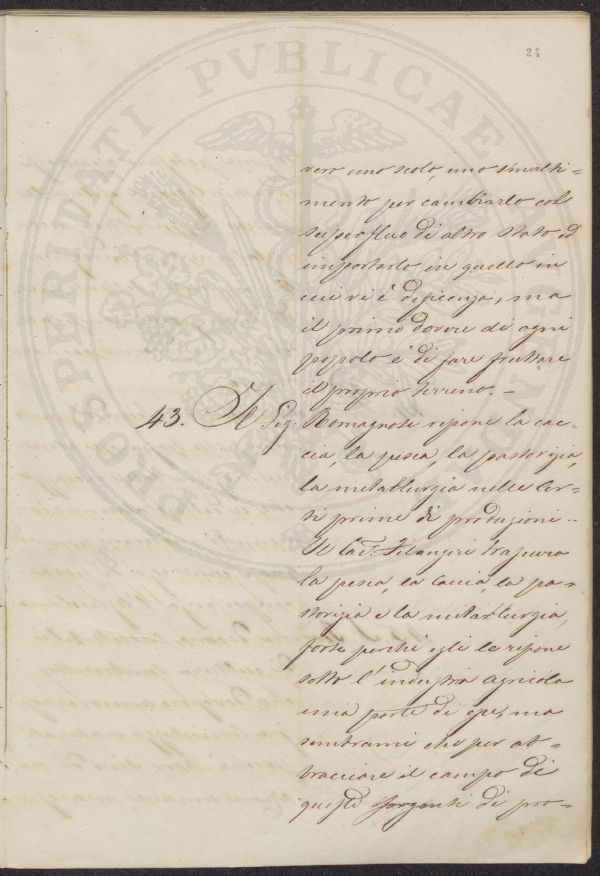 24
PROSPERITATI PVBLICAE AVGENDAE
vero uno scolo, uno smalti=
mento per cambiarlo col
superfluo di altro Stato ed
importarlo in quello in
cui vi è deficenza, ma
il primo dovere di ogni
popolo è di fare fruttare
il proprio terreno. –
43. Il Sig: Romagnosi ripone la cac=
cia, la pesca, la pastorizia,
la metallurgia nelle Ar=
ti prime di produzioni..
Il Cav: Filangeri trascura
la pesca, la caccia, la pa=
storizia e la metallurgia,
forse perchè egli le ripone
sotto l'industria agricola
una parte di esse, ma
sembrami che per ab=
bracciare il campo di
queste sorgenti di pro=